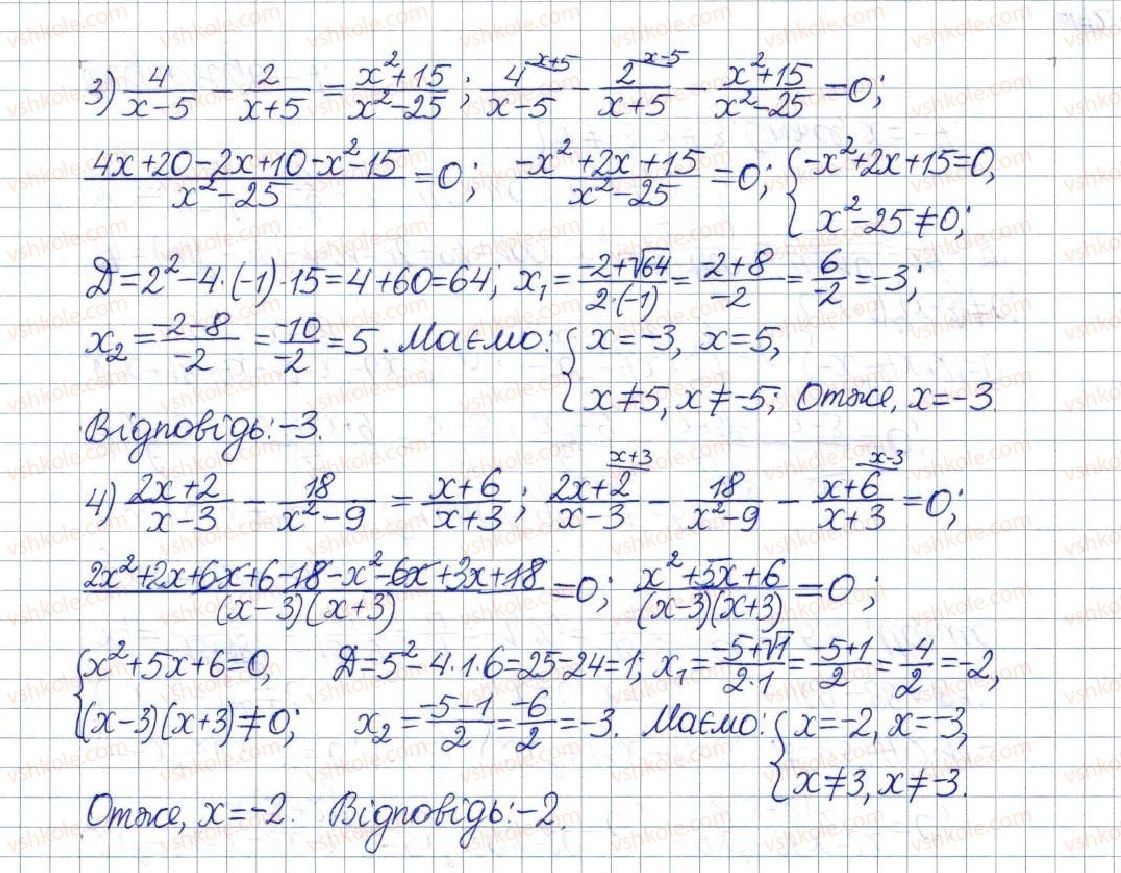 3) 4/(x-5) - 2/(x+5) = (x²+15)/(x²-25); 4^(x+5)/(x-5) - 2^(x-5)/(x+5) - (x²+15)/(x²-25) = 0;
(4x+20-2x+10-x²-15)/(x²-25) = 0; (-x²+2x+15)/(x²-25) = 0; { -x²+2x+15=0,
x²-25≠0;
Д=2²-4·(-1)·15=4+60=64; x₁ = (-2+√64)/(2·(-1)) = (-2+8)/(-2) = 6/(-2) = -3;
x₂ = (-2-8)/(-2) = (-10)/(-2) = 5. Маємо: { x=-3, x=5,
x≠5, x≠-5; Отже, x=-3.
Відповідь: -3.
4) (2x+2)/(x-3) - 18/(x²-9) = (x+6)/(x+3); (2x+2)^(x+3)/(x-3) - 18/(x²-9) - (x+6)^(x-3)/(x+3) = 0;
(2x²+2x+6x+6-18-x²-6x+3x+18)/((x-3)(x+3)) = 0; (x²+5x+6)/((x-3)(x+3)) = 0;
{ x²+5x+6=0, Д=5²-4·1·6=25-24=1; x₁ = (-5+√1)/(2·1) = (-5+1)/2 = -4/2 = -2,
(x-3)(x+3)≠0; x₂ = (-5-1)/2 = -6/2 = -3. Маємо: { x=-2, x=-3,
x≠3, x≠-3.
Отже, x=-2. Відповідь: -2.
vshkole.com